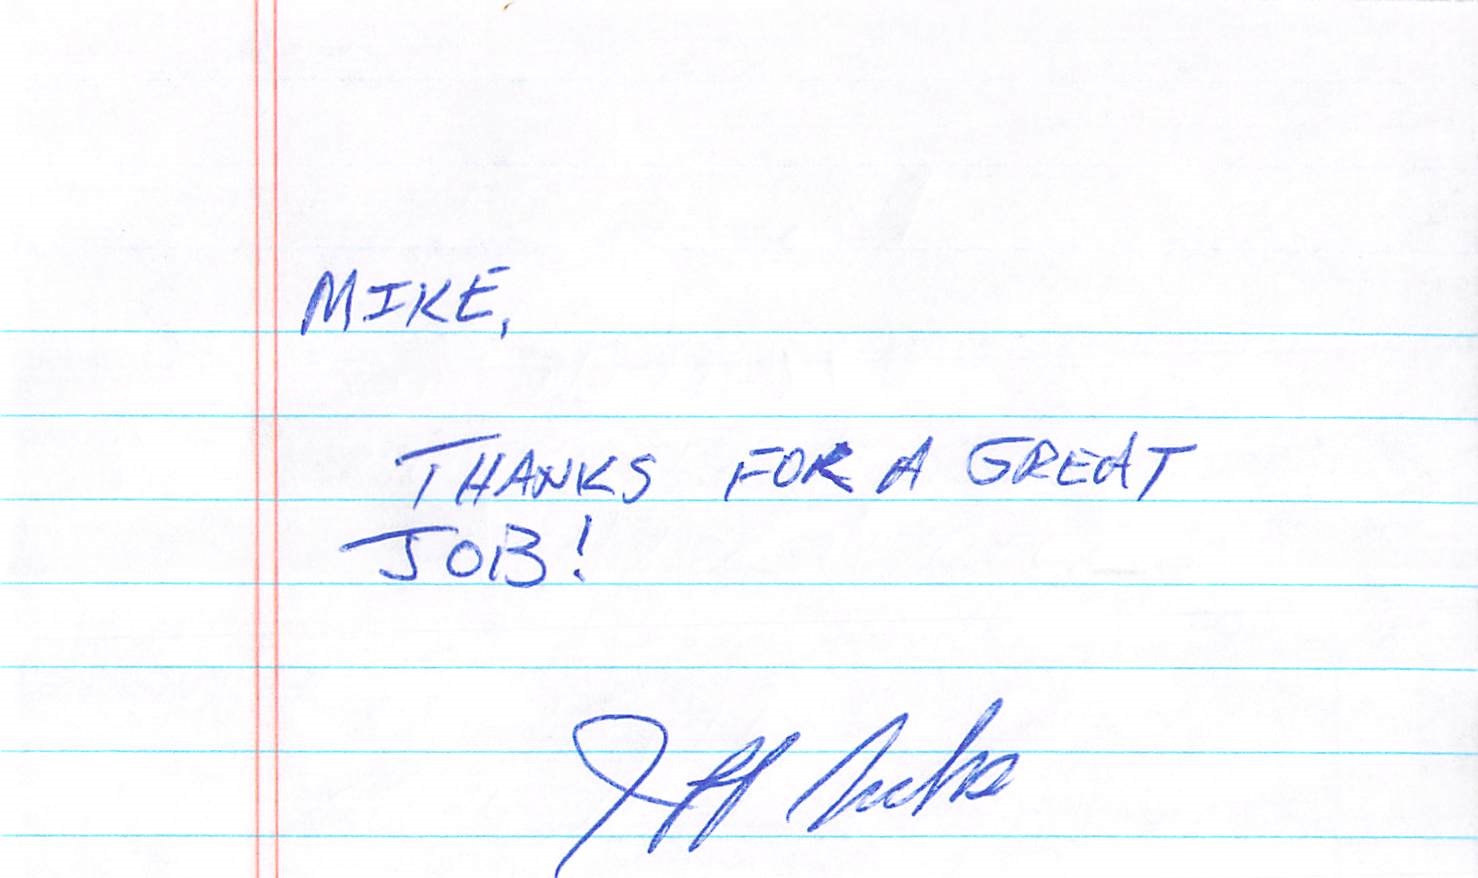 MIKE,
THANKS FOR A GREAT
JOB!
Jeff